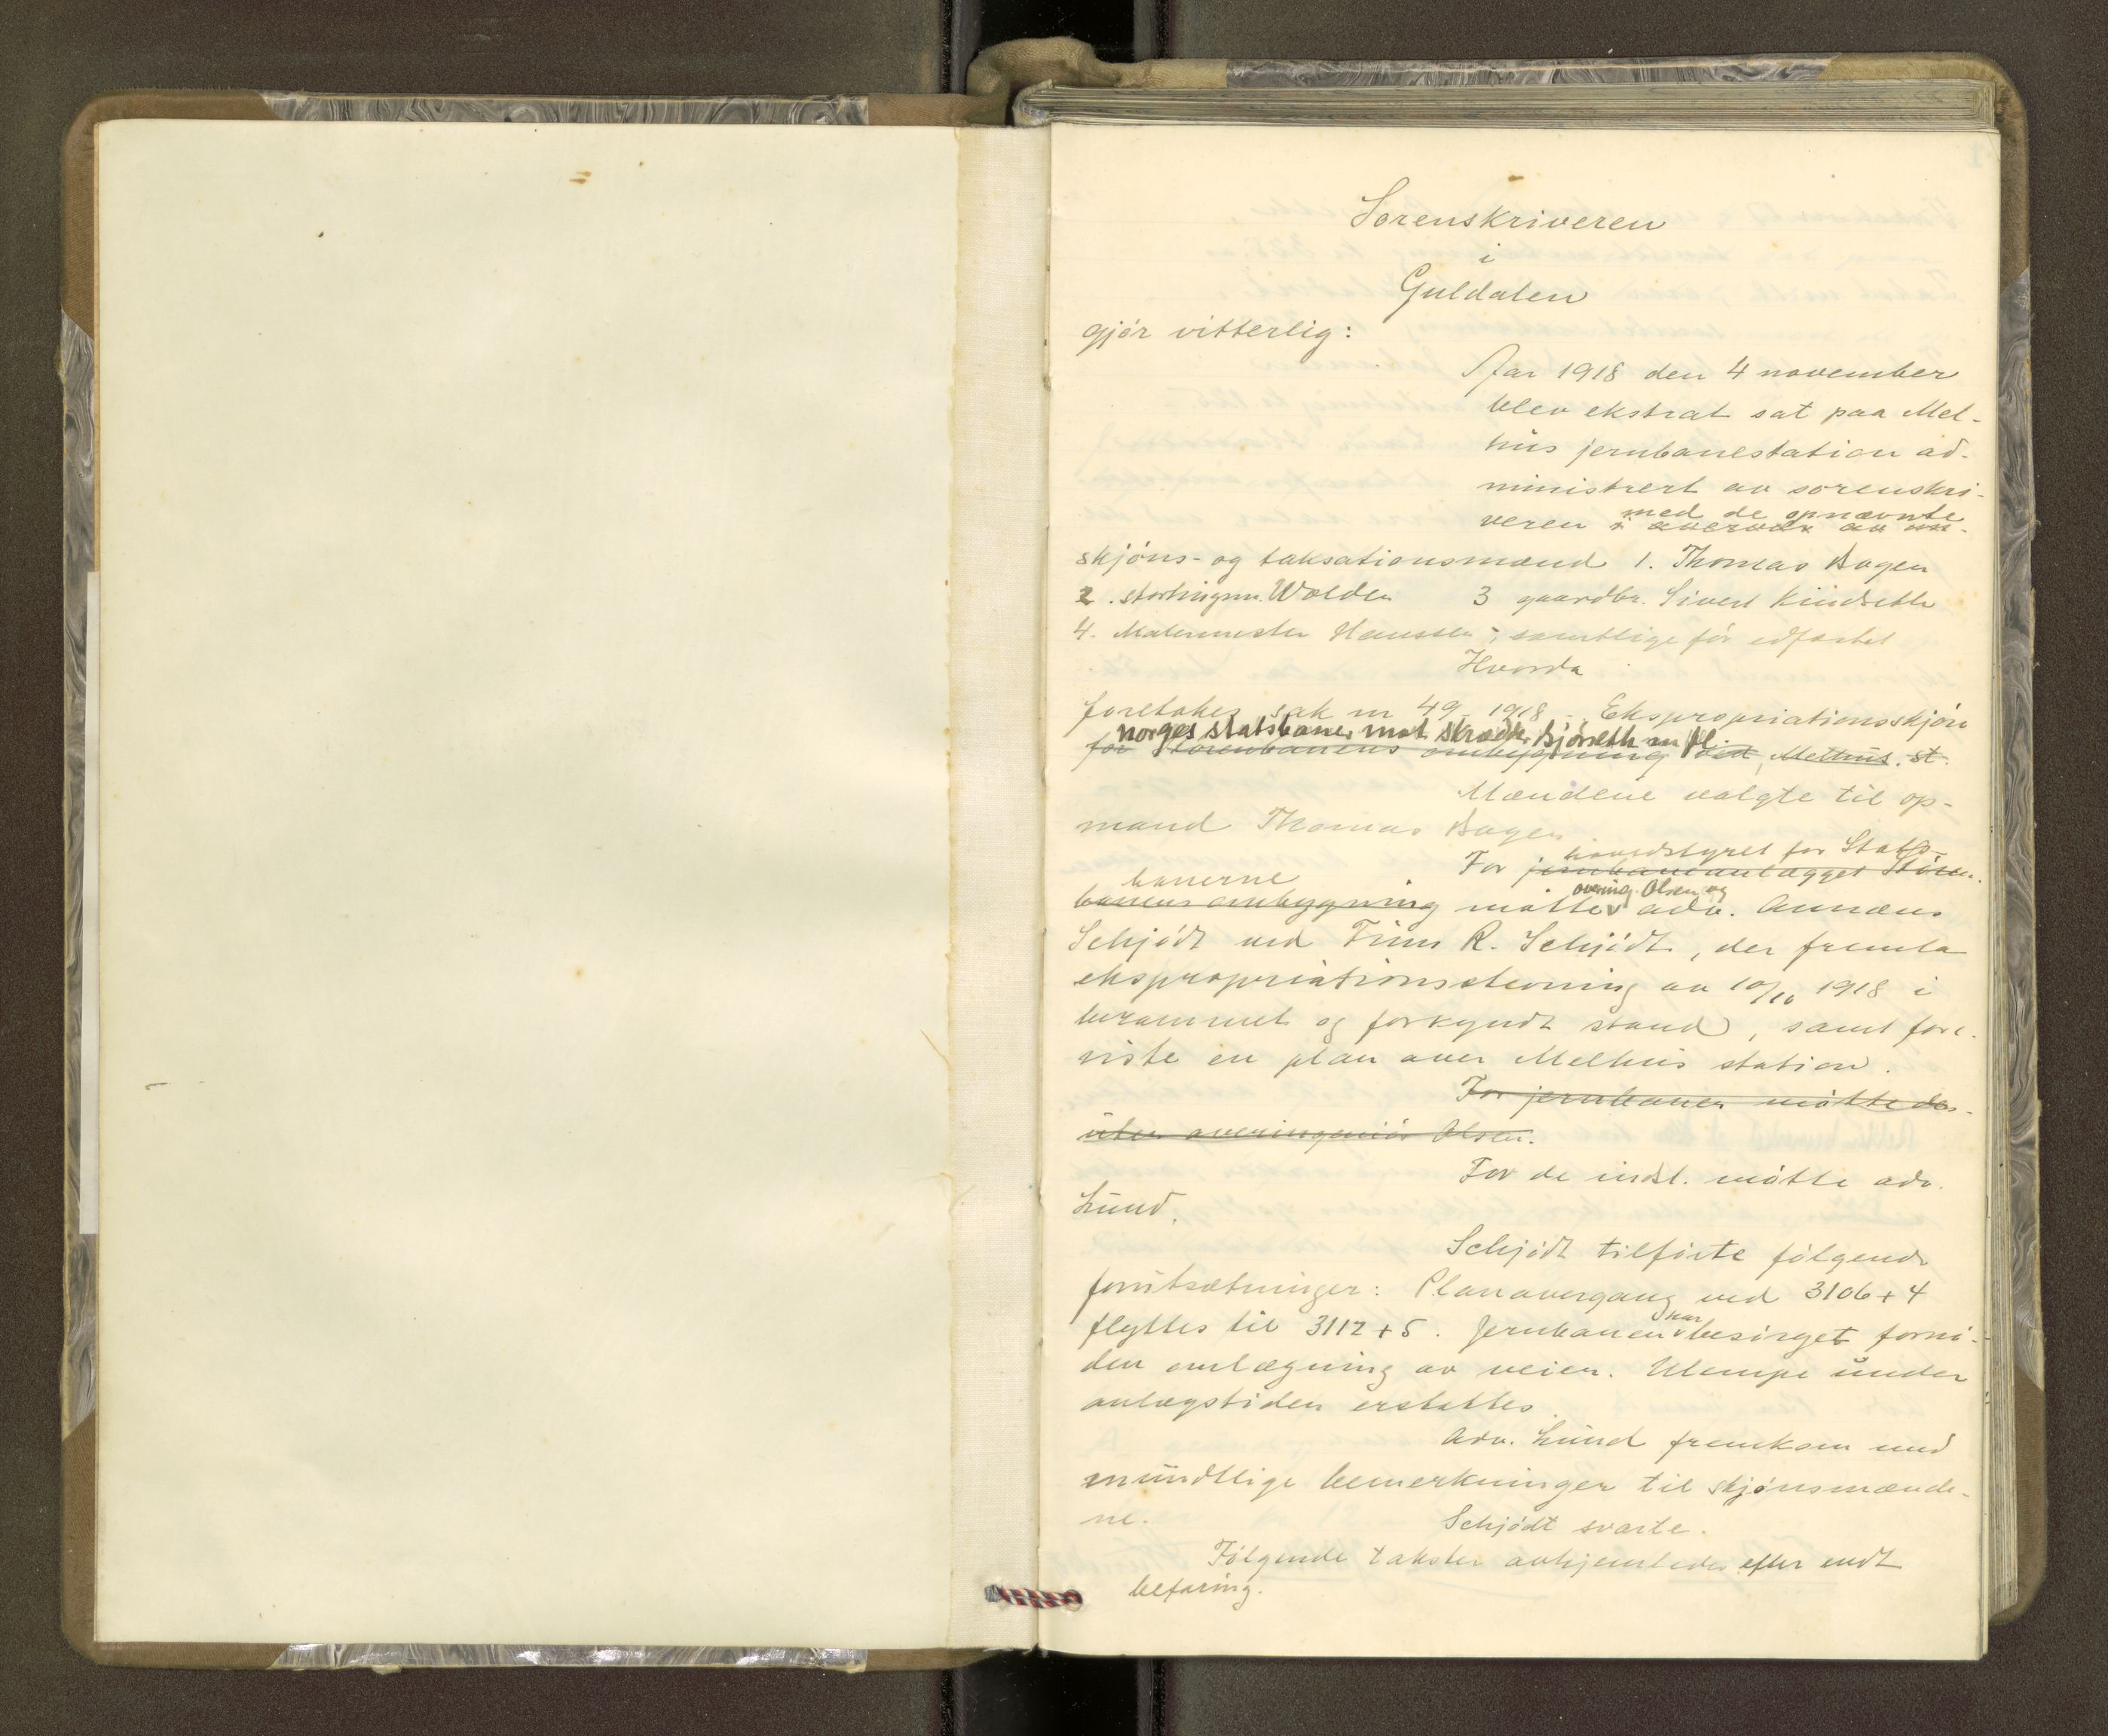 Sorenskriveren
i
Guldalen
gjør vitterlig:
Aar 1918 den 4 november
blev ekstrat sat paa Mel-
hus jernbanestation ad-
ministrert av sorenskri-
veren med de opnævnte
skjøns- og taksationsmænd 1. Thomas Bagen
2. stortingsm. Wolden 3 gaardbr. Sivert Kindseth
4. Malermester Hanssen, samtlige før edfæstet
Hvorda
foretokes sak nr 49 - 1918 - Ekspropriationsskjøn
norges statsbaner mot skrædder m fl.
for Størenbanens ombygning ved Melhus st.
Mændene valgte til op-
mand Thomas Bagen
hovedstyret for Stats-
For jernbaneanlægget Støren-
banerne
overing. Olsen og
banens ombygning møtte adv. Annæus
Schjødt ved Finn R. Schjødt, der fremla
ekspropriationsstevning av 10/10 1918 i
berammet og forkyndt stand, samt fore-
viste en plan over Melhus station.
For jernbanen møtte des-
uten overingeniør Olsen.
For de indst. møtte adv.
Lund.
Schjødt tilførte følgende
forutsætninger: Planovergang ved 3106 + 4
flyttes til 3112 + 5. Jernbanen har besørget fornø-
den omlægning av veien. Ulempe under
anlægstiden erstattes
Adv. Lund fremkom med
mundtlige bemerkninger til skjønsmænde-
ne.
Schjødt svarte.
Følgende takster avhjemledes efter endt
befaring.